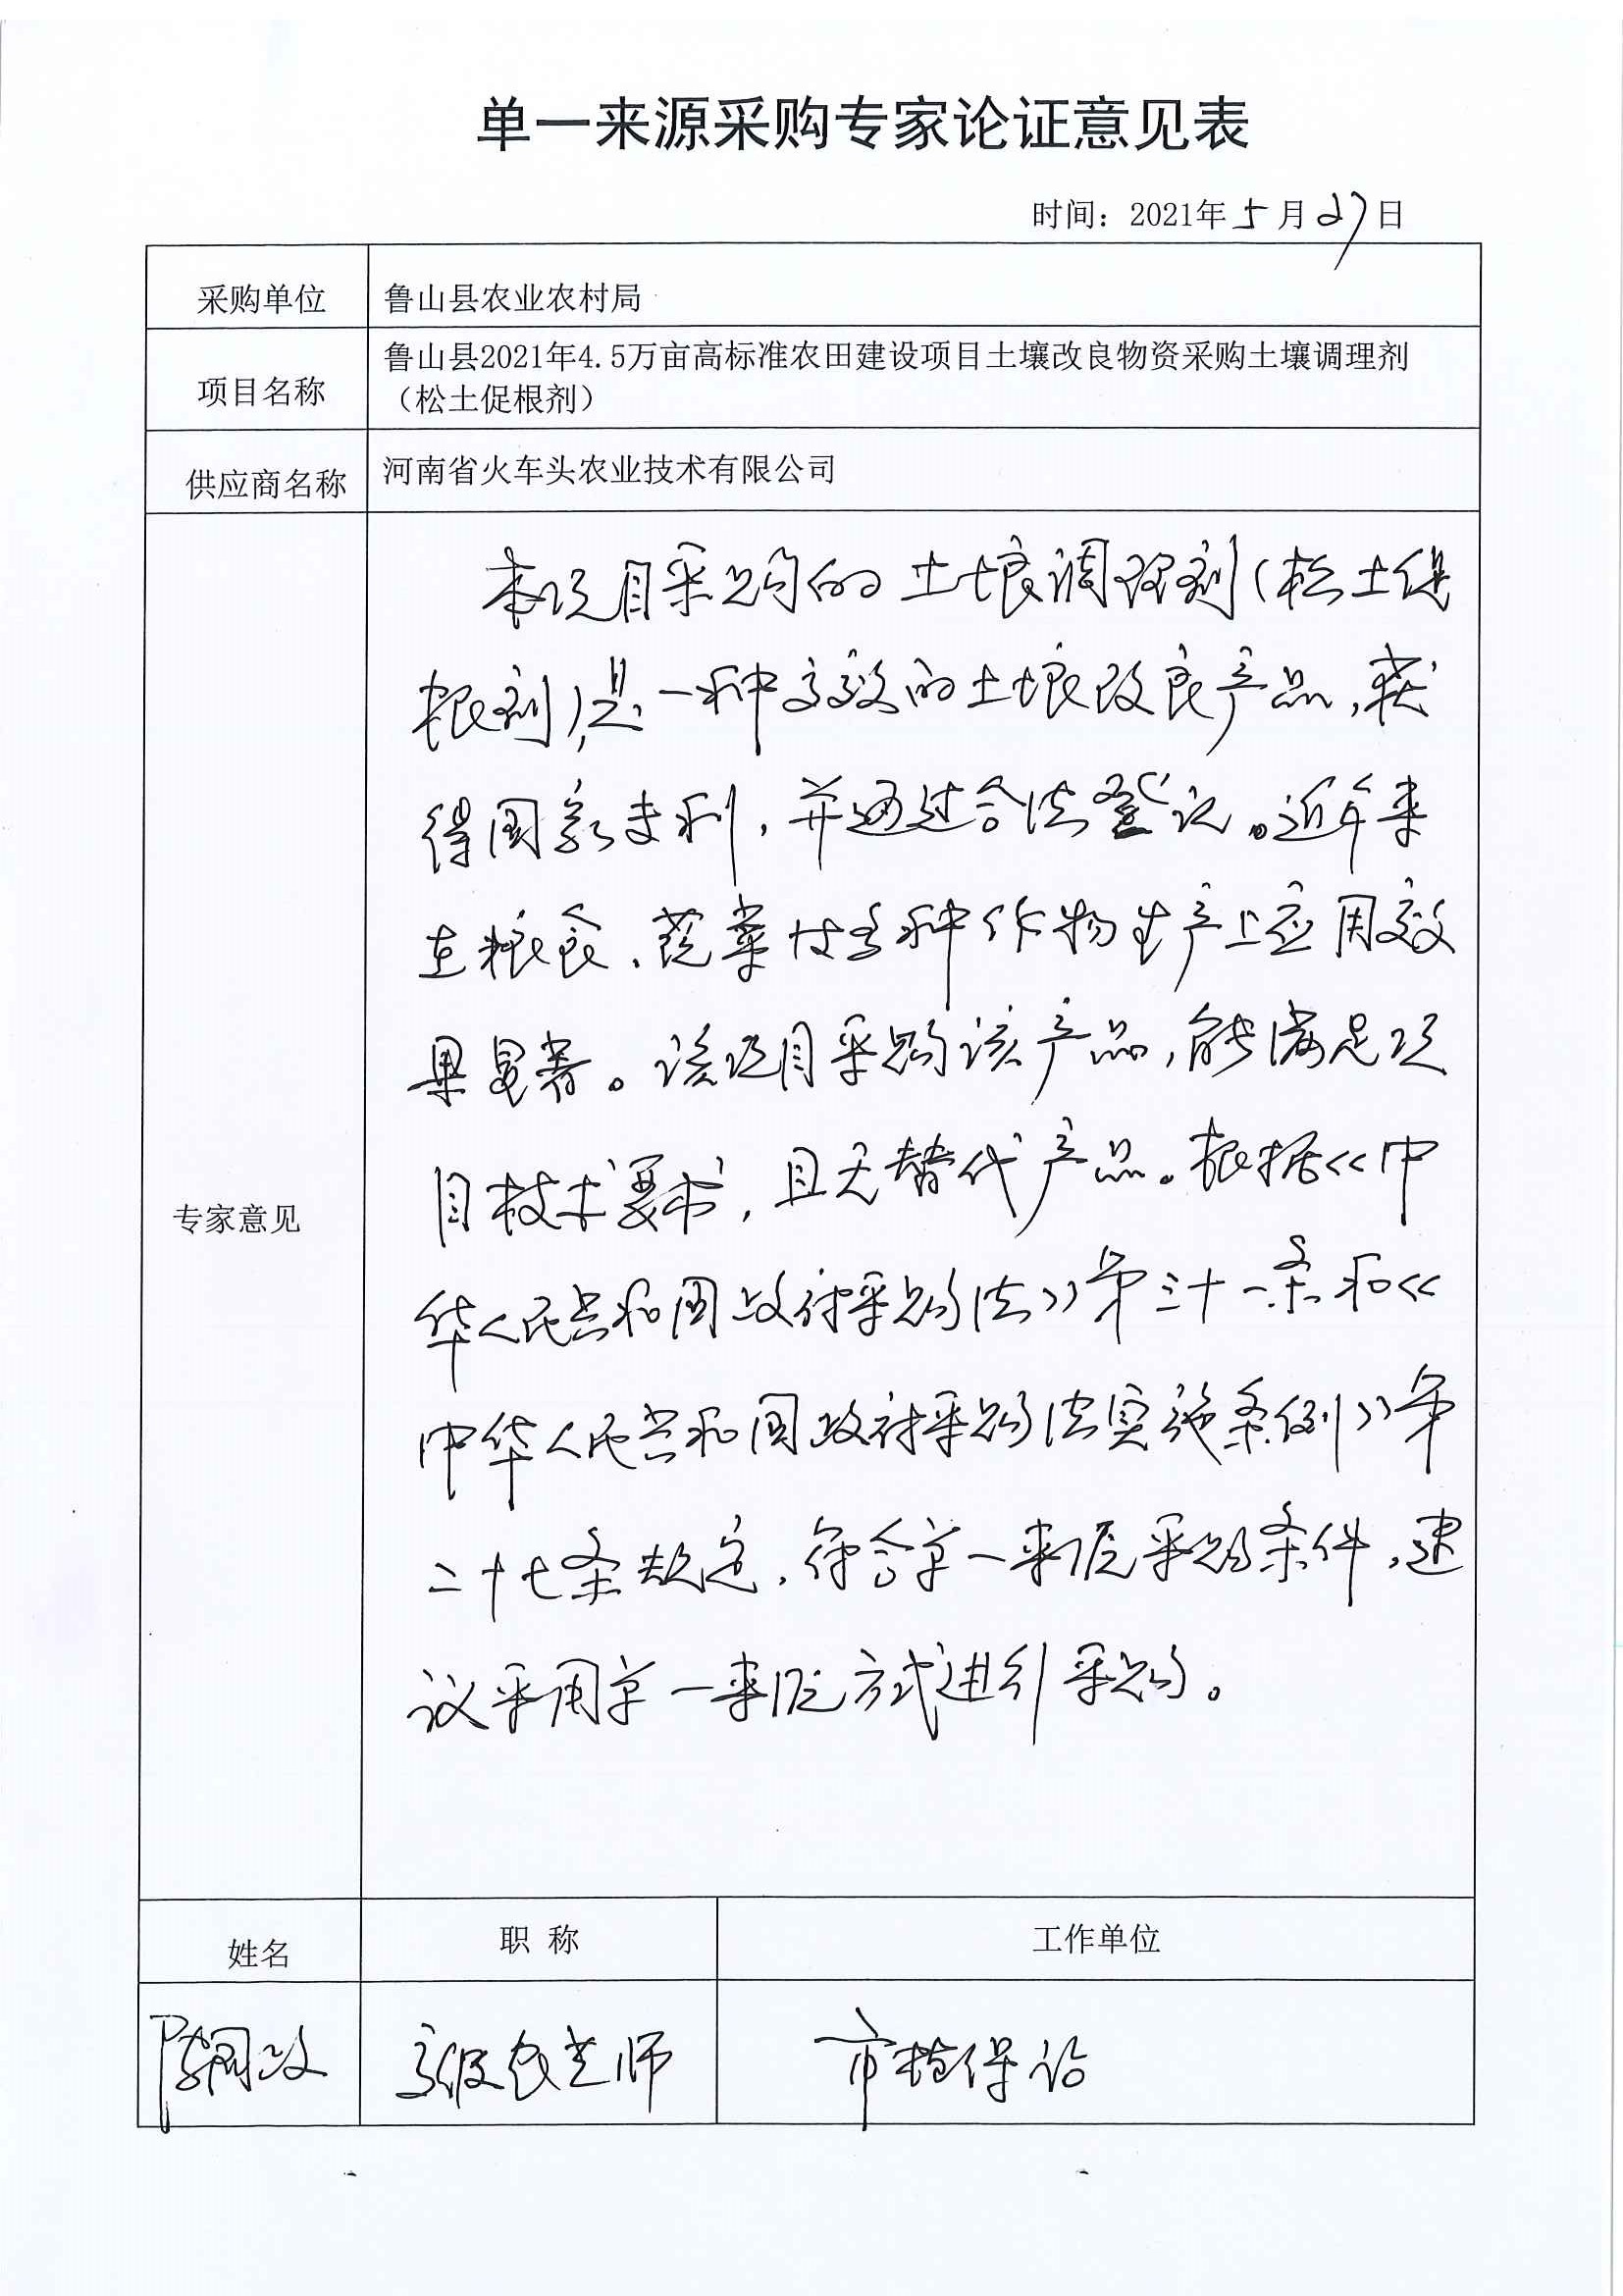 单一来源采购专家论证意见表
时间：2021年5月27日
采购单位
鲁山县农业农村局
项目名称
鲁山县2021年4.5万亩高标准农田建设项目土壤改良物资采购土壤调理剂
（松土促根剂）
供应商名称
河南省火车头农业技术有限公司
专家意见
本项目采购的土壤调理剂(松土促
根剂),是一种高效的土壤改良产品,获
得国家专利,并通过合法登记。近年来
在粮食、蔬菜等多种作物生产上应用效
果显著。该项目采购该产品,能满足项
目技术要求,且无替代产品。根据《中
华人民共和国政府采购法》第三十一条和《
中华人民共和国政府采购法实施条例》第
二十七条规定,符合单一来源采购条件,建
议采用单一来源方式进行采购。
姓名
职 称
工作单位
高级农艺师
市植保站